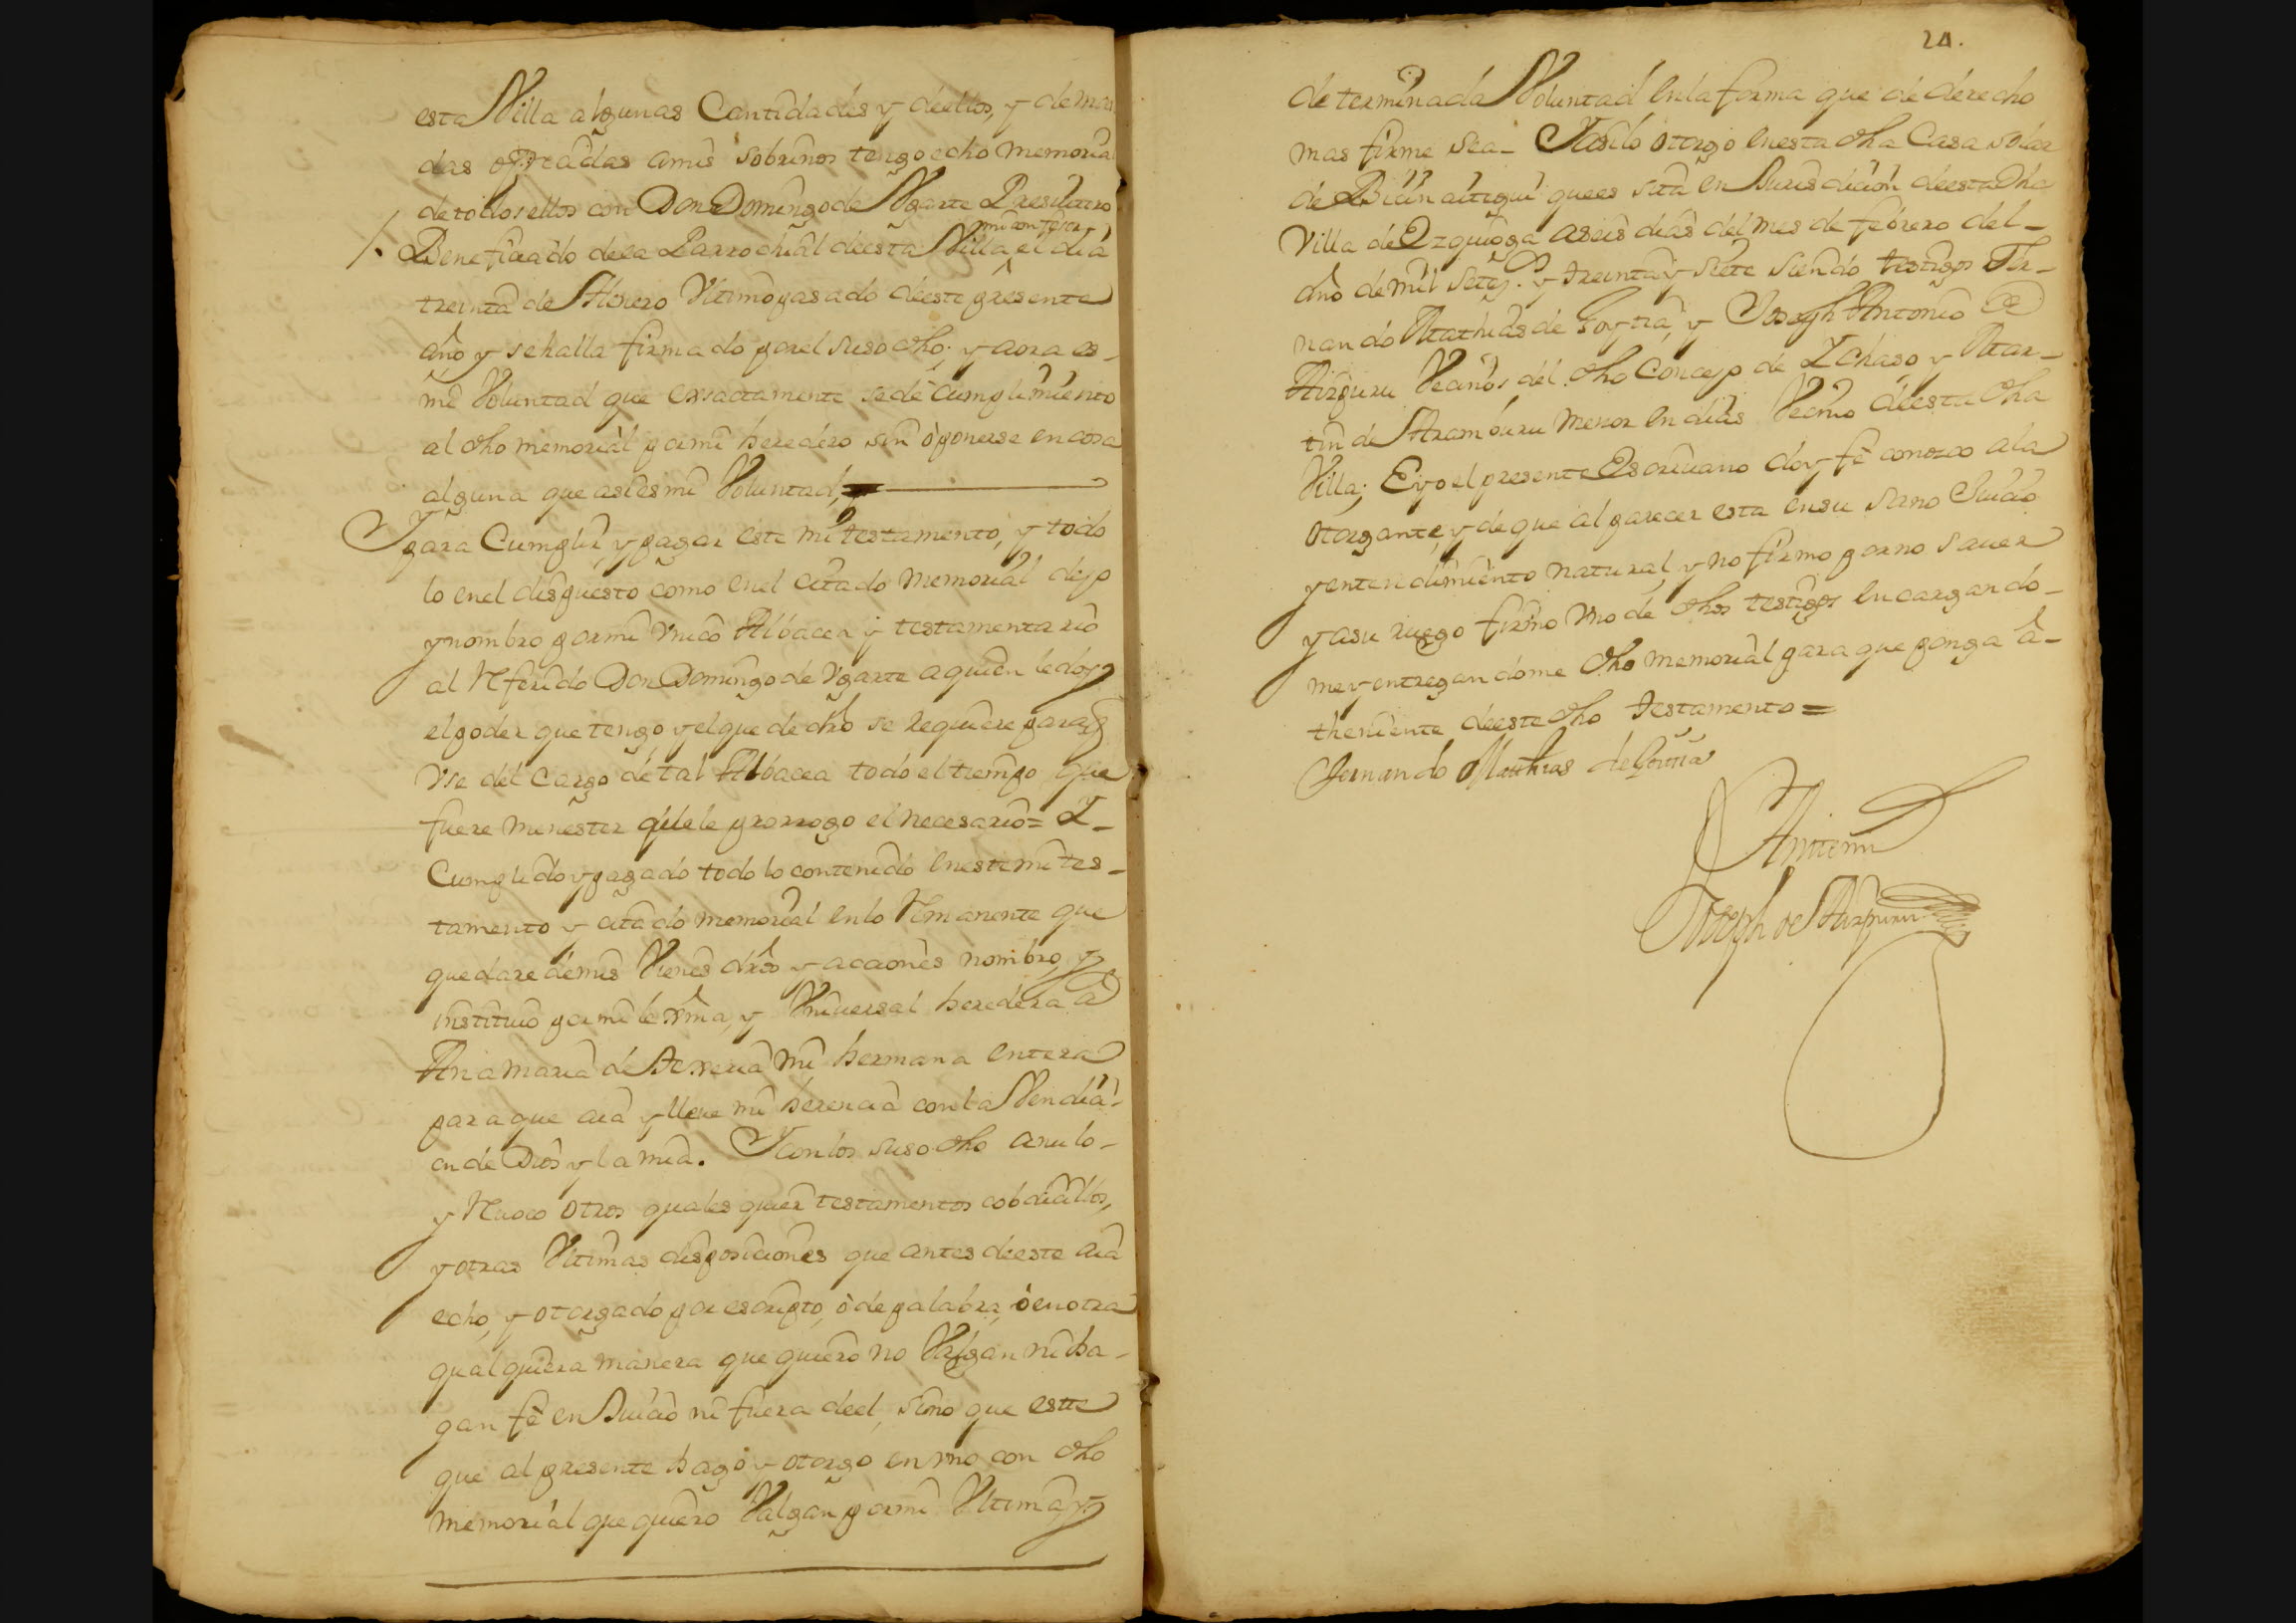 esta Villa algunas Cantidades y de ellos, y deman
das ofrecidas a mis sobrinos tengo echo memorial
de todos ellos con Don Domingo de Vgarte Presuitero
mi confesor
Beneficiado de la Parrochial de esta Villa el dia
treinta de Henero Vltimo pasado de este presente
año y se halla firmado por el suso dho; y aora es
mi Voluntad que exsactamente se dé cumplimiento
al dho memorial por mi heredero sin òponerse en cosa
alguna que asi es mi Voluntad,
Y para Cumplir, y pagar este mi testamento, y todo
lo en el dispuesto como en el citado memorial dejo
y nombro por mi vnico Albacea y testamentario
al Referido Don Domingo de Vgarte a quien le doy
el poder que tengo y el que de dro se requiere para q
vse del Cargo de tal Albacea todo el tiempo que
fuere menester que le prorrogo el necesario = Y
Cumplido y pagado todo lo contenido en este mi tes-
tamento y citado memorial en lo Remanente que
quedare de mis Vienes dros y acciones nombro, y
instituio por mi lexma, y Vniversal heredera à
Ana maria de mi hermana entera
para que aia y lleve mi herencia con la Vendiz-
on de Dios y la mia. Y con los suso dho anulo-
y Revoco otros quales quier testamentos cobdicillos,
y otras Vltimas disposiciones que antes de este aia
echo, y otorgado por escripto, ò de palabra, ò en otra
qual quiera manera que quiero no Valgan ni ha-
gan fè en Juicio ni fuera de el, sino que este
que al presente hago y otorgo en vno con dho
memorial que quiero Valgan por mi Vltima, y
24.
determinada Voluntad en la forma que de derecho
mas firme sea - Y asi lo otorgo en esta dha Casa solar
de quees sita en Jurisdicion de esta dha
Villa de Ezquioga a seis dias del mes de febrero del -
año de mil setez.s y treinta y siete siendo testigos Fer-
nando Mathias de Goytia, y Joseph Antonio de
Aizpuru Vecinos del dho Concejo de Ychaso, y Mar-
tin de Aramburu menor en dias Vecino de esta dha
Villa; E yo el presente Escriuano doy fê conozco a la
otorgante, y de que al parecer esta en su sano Juicio
y entendimiento natural, y no firmo por no sauer
y a su ruego firmo vno de dhos testigos encargando-
me y entregandome dho memorial para que ponga â-
theniente de este dho testamento =
Fernando Mathias de Goitia
Antemi
Joseph de Aizpuru